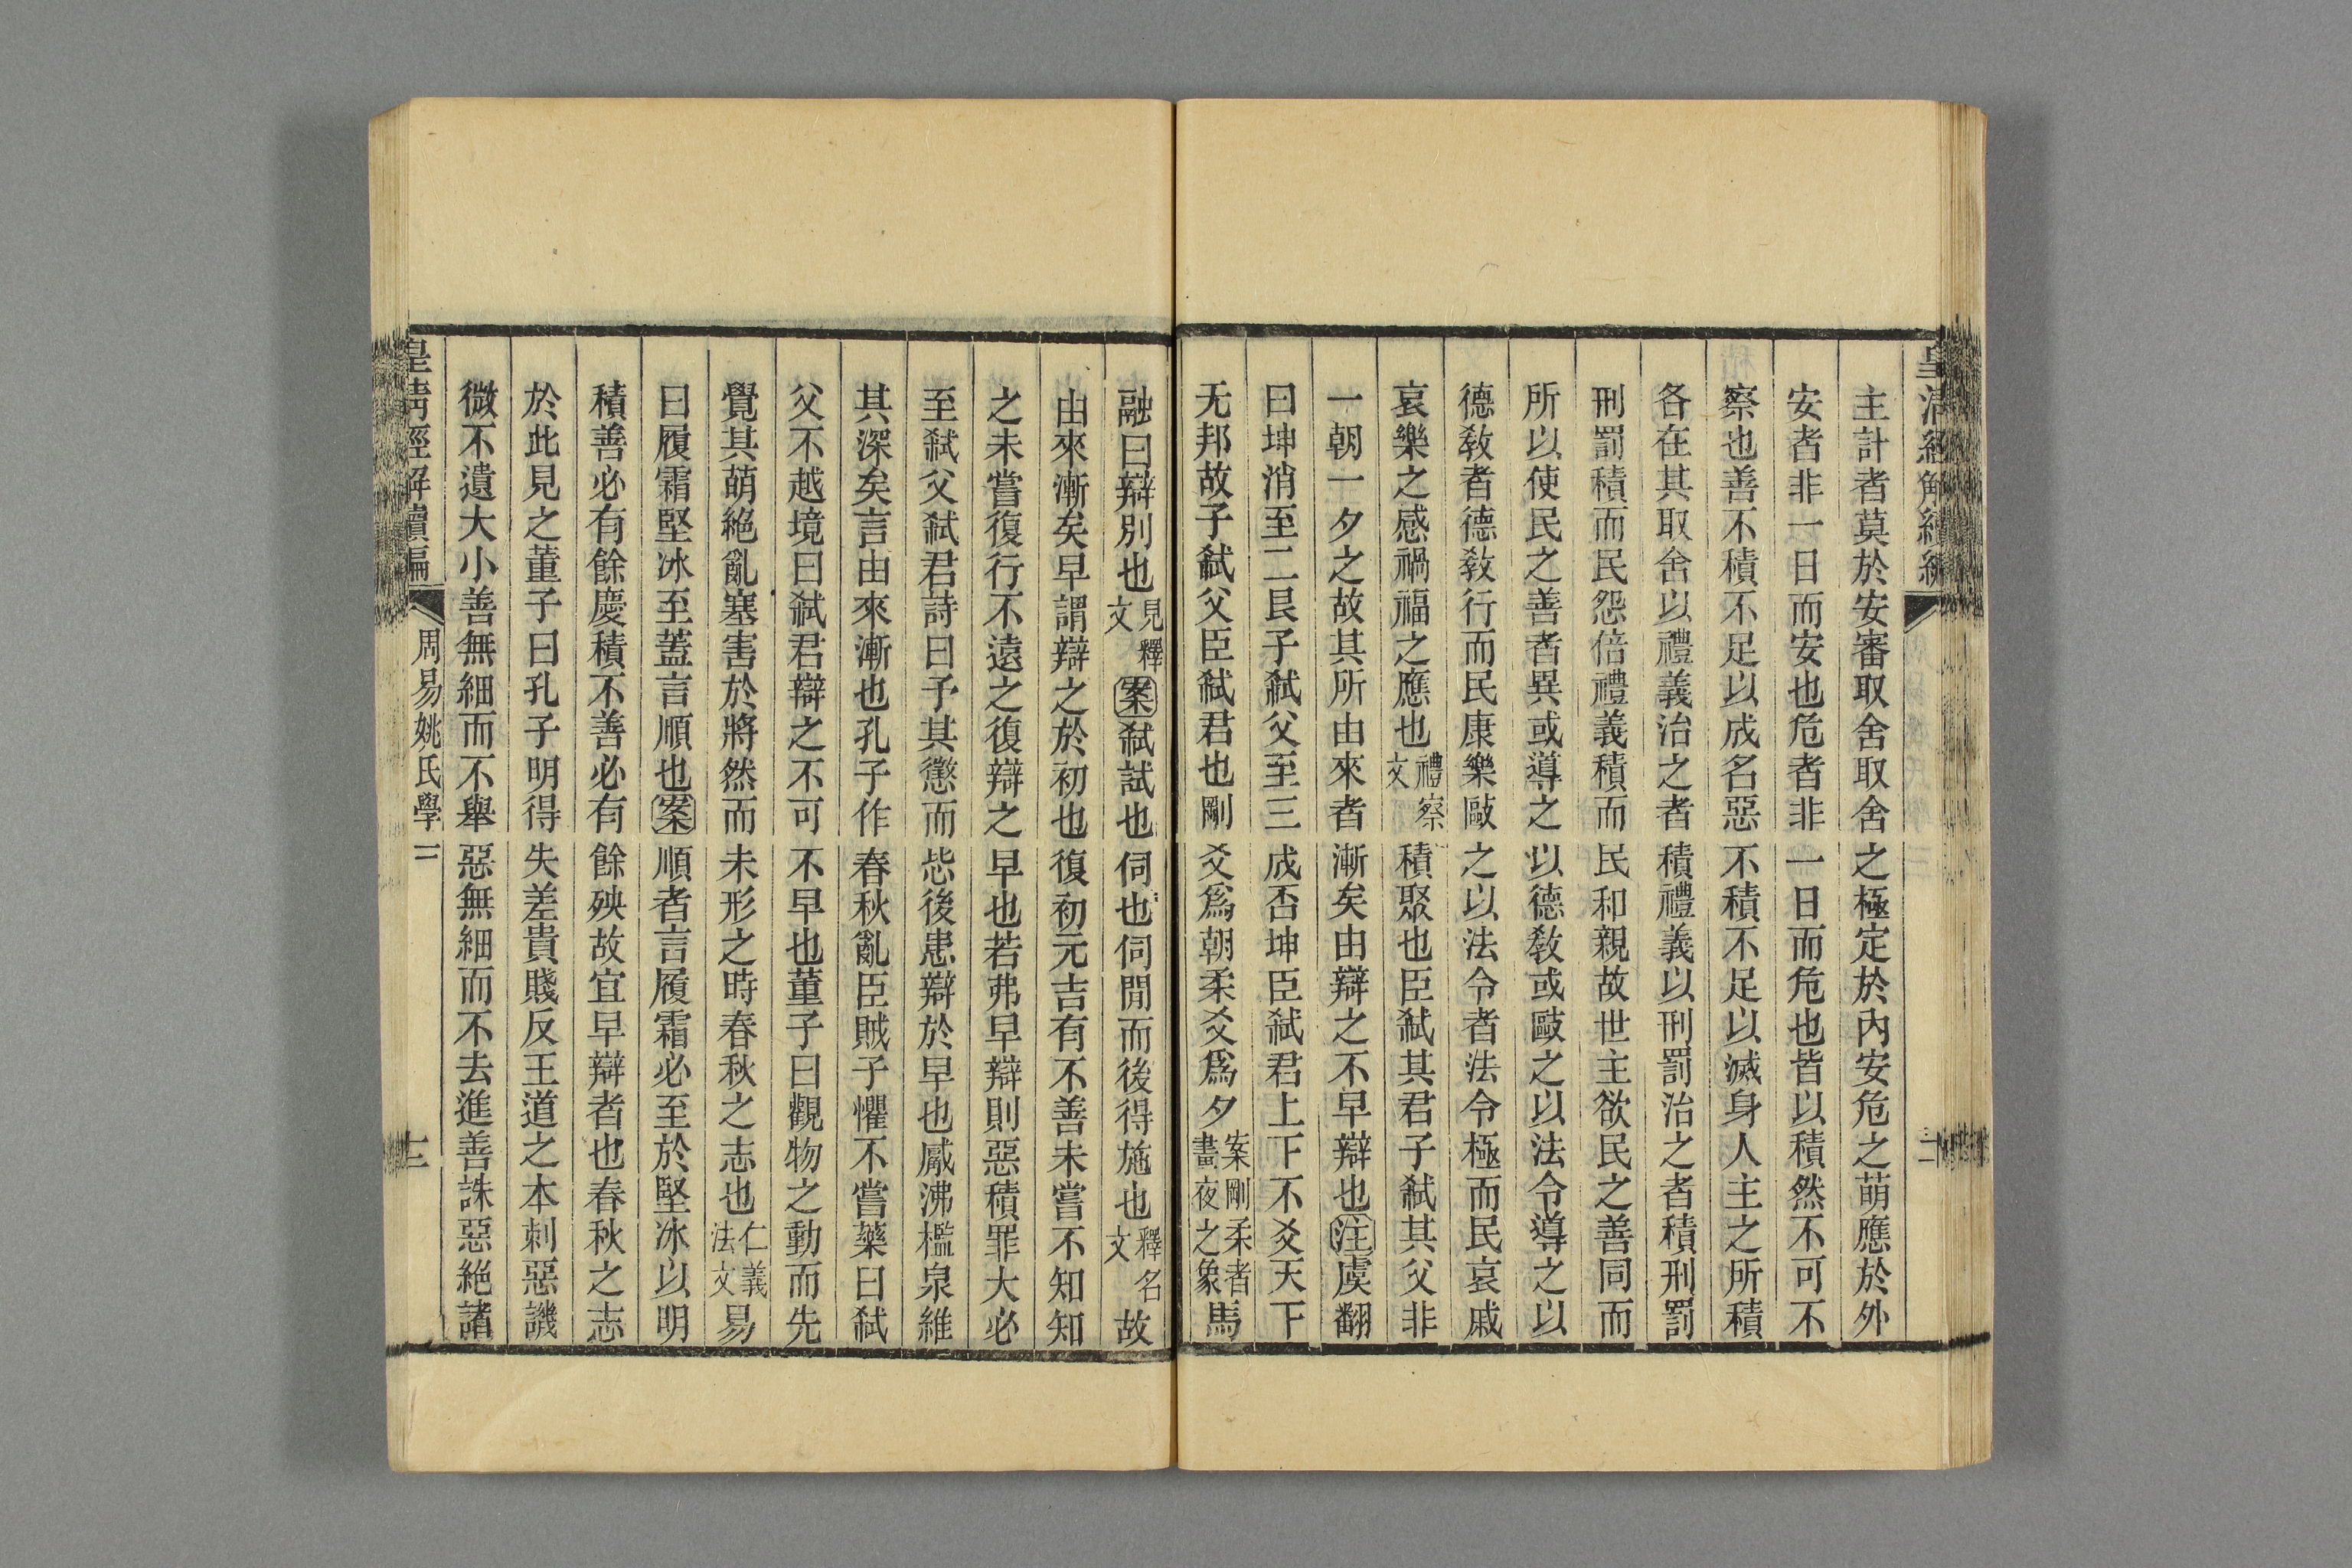 皇清經解續編
主計者莫於安審取舍取舍之極定於內安危之萌應於外
安者非一日而安也危者非一日而危也皆以積然不可不
察也善不積不足以成名惡不積不足以滅身人主之所積
各在其取舍以禮義治之者積禮義以刑罰治之者積刑罰
刑罰積而民怨倍禮義積而民和親故世主欲民之善同而
所以使民之善者異或導之以德敎或敺之以法令導之以
德敎者德敎行而民康樂敺之以法令者法令極而民哀戚
哀樂之感禍福之應也禮察文積聚也臣弑其君子弑其父非
一朝一夕之故其所由來者漸矣由辯之不早辯也注虞翻
曰坤消至二艮子弑父至三成否坤臣弑君上下不爻天下
无邦故子弑父臣弑君也剛爻爲朝柔爻爲夕案剛柔者晝夜之象馬
融曰辯別也見釋文案弑試也伺也伺閒而後得施也釋名文故
由來漸矣早謂辯之於初也復初元吉有不善未嘗不知知
之未嘗復行不遠之復辯之早也若弗早辯則惡積罪大必
至弑父弑君詩曰予其懲而毖後患辯於早也觱沸檻泉維
其深矣言由來漸也孔子作春秋亂臣賊子懼不嘗藥曰弑
父不越境曰弑君辯之不可不早也董子曰觀物之動而先
覺其萌絕亂塞害於將然而未形之時春秋之志也仁義法文易
曰履霜堅冰至蓋言順也案順者言履霜必至於堅冰以明
積善必有餘慶積不善必有餘殃故宜早辯者也春秋之志
於此見之董子曰孔子明得失差貴賤反王道之本刺惡譏
微不遺大小善無細而不舉惡無細而不去進善誅惡絕諸
皇清經解續編 周易姚氏學二